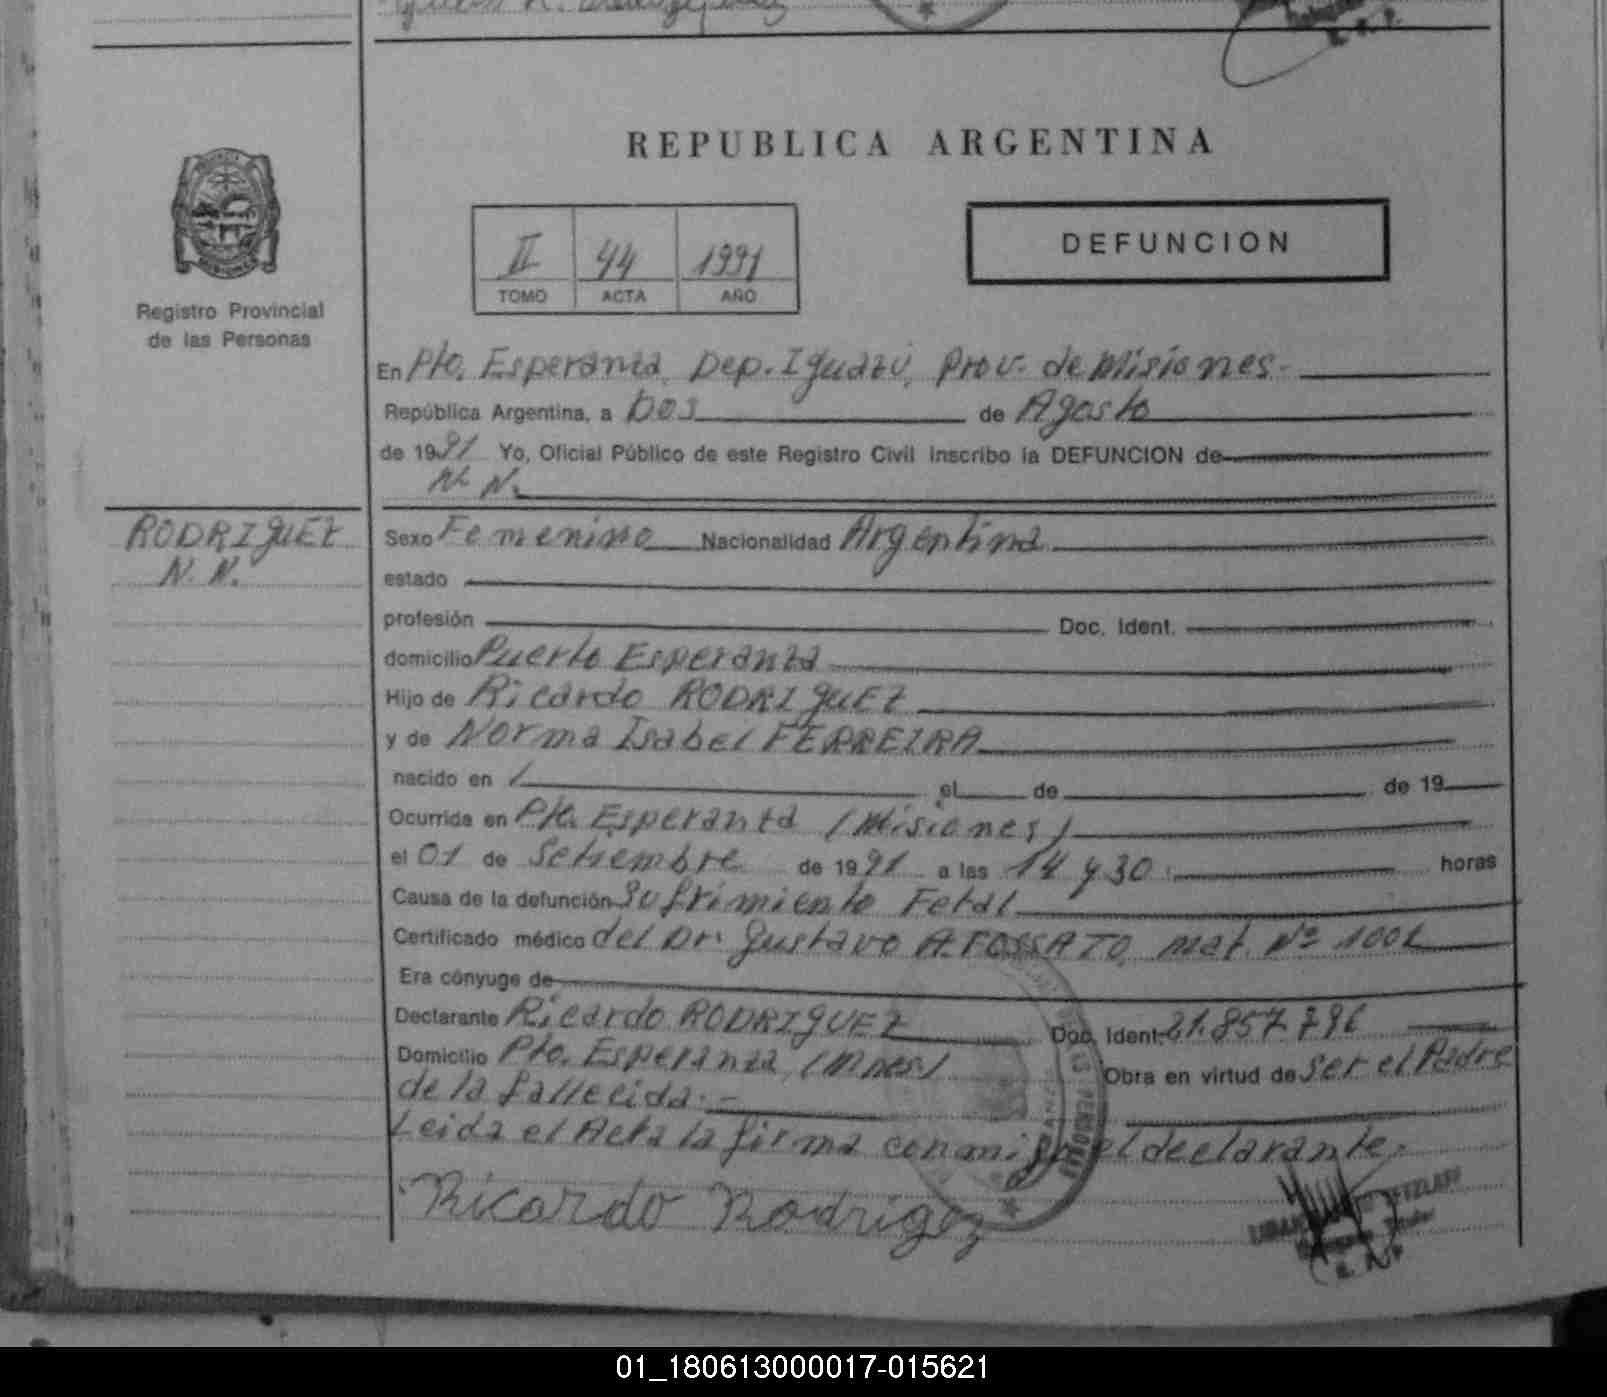 REPUBLICA ARGENTINA
II 44 1991
TOMO ACTA AÑO
DEFUNCION
Registro Provincial
de las Personas
En Pto. Esperanza, Dep. Iguazú, Prov. de Misiones.-
República Argentina, a Dos de Agosto
de 1991 Yo, Oficial Público de este Registro Civil inscribo la DEFUNCION de
N. N.
RODRIGUEZ
N. N.
Sexo Femenino Nacionalidad Argentina
estado
profesión Doc. Ident.
domicilio Puerto Esperanza
Hijo de Ricardo RODRIGUEZ
y de Norma Isabel FERREIRA
nacido en / el de de 19
Ocurrida en Pto. Esperanza (Misiones)
el 01 de Setiembre de 1991 a las 14 y 30 horas
Causa de la defunción Sufrimiento Fetal
Certificado médico del Dr. Gustavo A. FOSSATO, mat. Nº
Era cónyuge de
Declarante Ricardo RODRIGUEZ Doc. Ident.
Domicilio Pto. Esperanza (Mnes) Obra en virtud de ser el Padre
de la fallecida.-
Leida el Acta la firma conmigo el declarante.
Ricardo Rodrigez
01_180613000017-015621